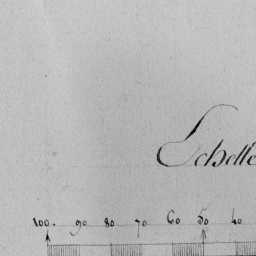 Echelle
100. 90 80 70 60 50 40